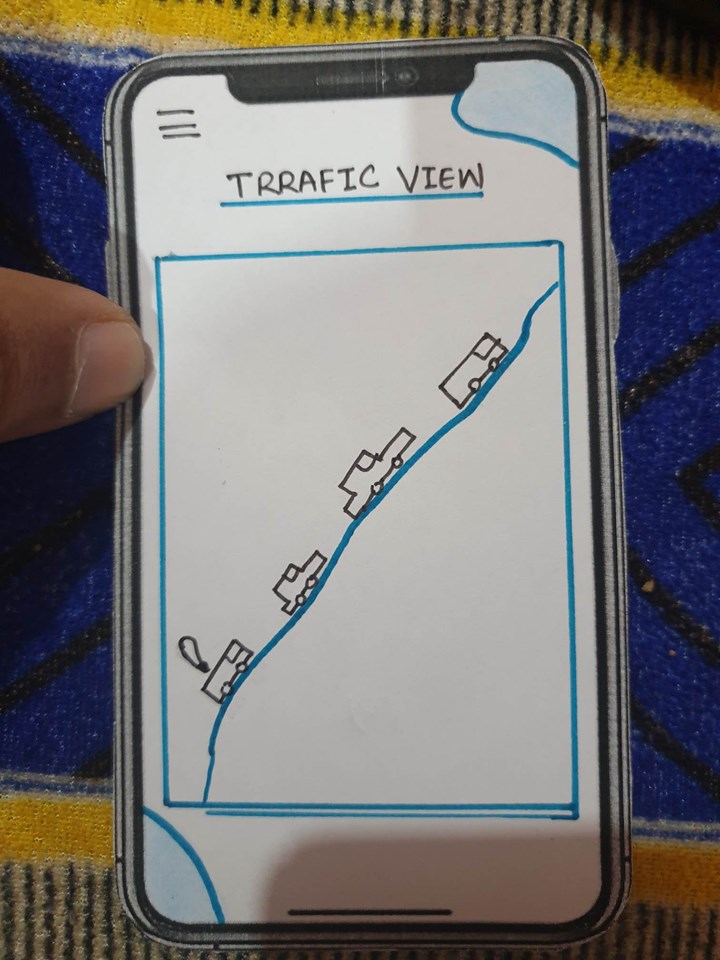 TRRAFIC VIEW